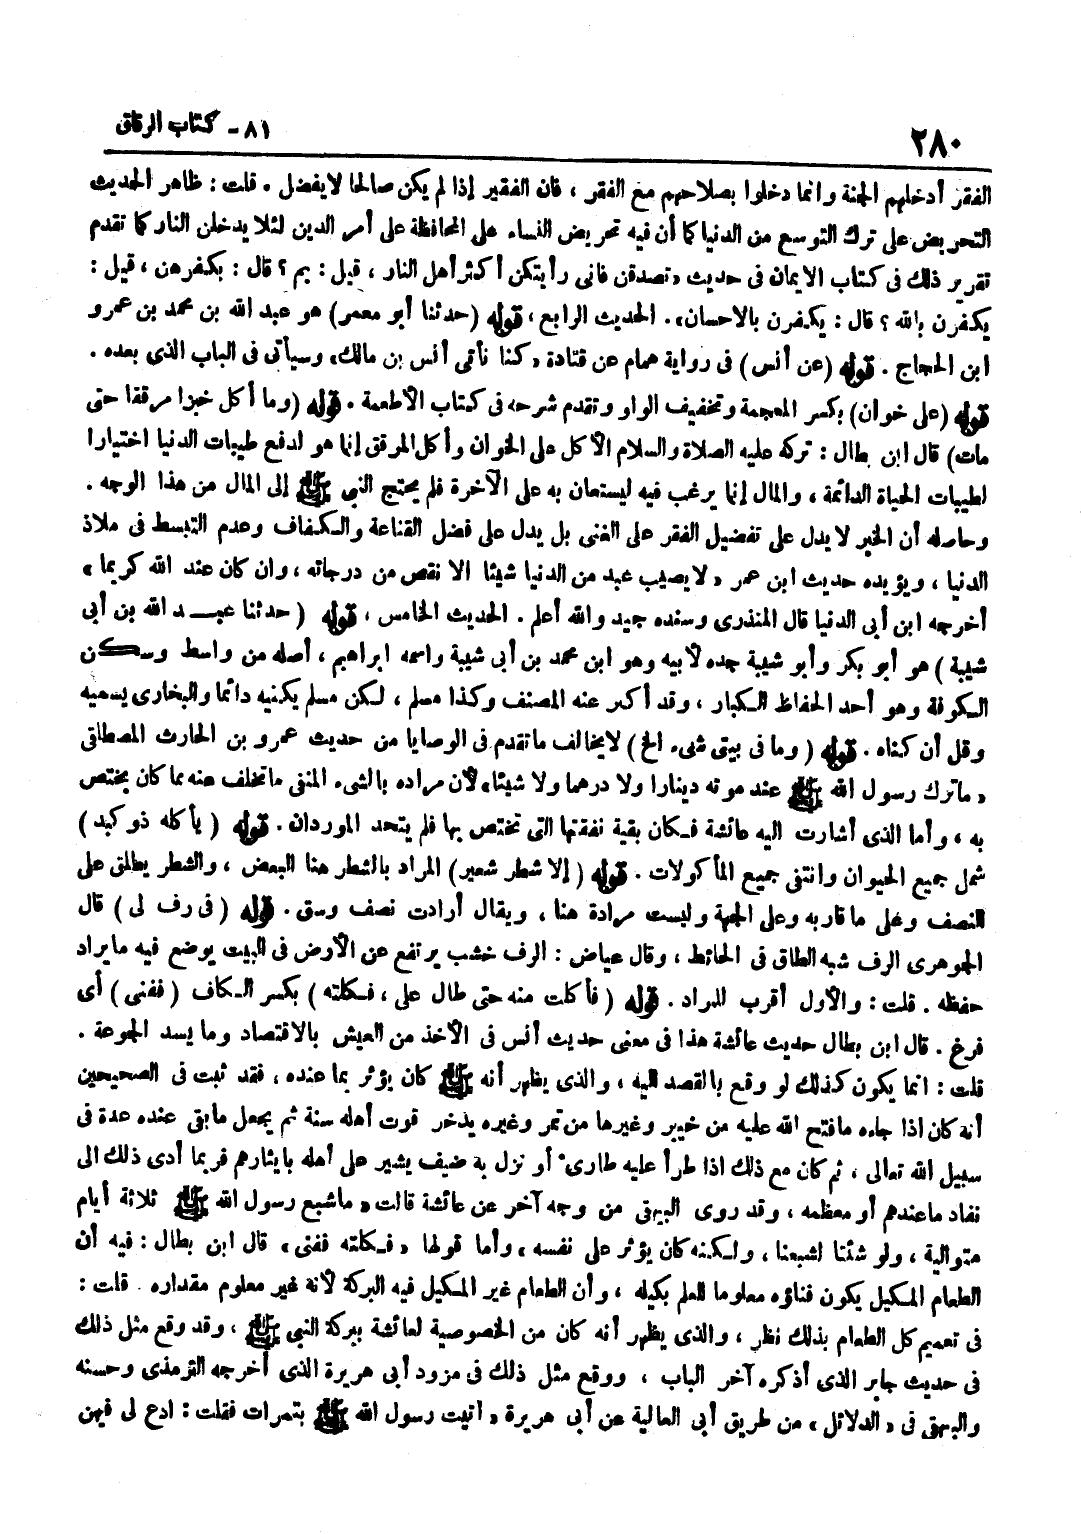 ٢٨٠
٨١- كتاب الرقاق
الفقر أدخلهم الجنة وانما دخلوا بصلاحهم مع الفقر ، فان الفقير إذا لم يكن صالحا لايفضل . قلت : ظاهر الحديث
التحريض على ترك التوسع من الدنيا كما أن فيه تحريض النساء على المحافظة على أمر الدين لئلا يدخلن النار كما تقدم
تقرير ذلك فى كتاب الايمان فى حديث « تصدقن فانى رأيتكن أكثر أهل النار ، قيل : بم ؟ قال : بكفرهن ، قيل :
يكفرن بالله ؟ قال : يكفرن بالاحسان » . الحديث الرابع ، قوله (حدثنا أبو معمر) هو عبد الله بن محمد بن عمرو
ابن الحجاج . قوله (عن أنس) فى رواية همام عن قتادة « كنا نأتى أنس بن مالك » وسيأتى فى الباب الذى بعده .
قوله (على خوان) بكسر المعجمة وتخفيف الواو وتقدم شرحه فى كتاب الأطعمة . قوله (وما أكل خبزا مرققا حتى
مات) قال ابن بطال : تركه عليه الصلاة والسلام الأكل على الخوان وأكل المرقق إنما هو لدفع طيبات الدنيا اختيارا
لطيبات الحياة الدائمة ، والمال إنما يرغب فيه ليستعان به على الآخرة فلم يحتج النبى ﷺ إلى المال من هذا الوجه .
وحاصله أن الخبر لا يدل على تفضيل الفقر على الغنى بل يدل على فضل القناعة والكفاف وعدم التبسط فى ملاذ
الدنيا ، ويؤيده حديث ابن عمر « لا يصيب عبد من الدنيا شيئا الا نقص من درجاته ، وان كان عند الله كريما »
أخرجه ابن أبى الدنيا قال المنذرى وسنده جيد والله أعلم . الحديث الخامس ، قوله ( حدثنا عبد الله بن أبى
شيبة ) هو أبو بكر وأبو شيبة جده لأبيه وهو ابن محمد بن أبى شيبة واسمه ابراهيم ، أصله من واسط وسكن
الكوفة وهو أحد الحفاظ الكبار ، وقد أكثر عنه المصنف وكذا مسلم ، لكن مسلم يكنيه دائما والبخارى يسميه
وقل أن كناه . قوله ( وما فى بيتى شىء الخ ) لا يخالف ما تقدم فى الوصايا من حديث عمرو بن الحارث المصطلقى
« ما ترك رسول الله ﷺ عند موته دينارا ولا درهما ولا شيئا » لأن مراده بالشىء المنفى ما تخلف عنه مما كان يختص
به ، وأما الذى أشارت اليه عائشة فكان بقية نفقتها التى تختص بها فلم يتحد الموردان . قوله ( يأكله ذو كبد )
شمل جميع الحيوان وانتفى جميع المأكولات . قوله ( إلا شطر شعير) المراد بالشطر هنا البعض ، والشطر يطلق على
النصف وعلى ما قاربه وعلى الجهة وليست مرادة هنا ، ويقال أرادت نصف وسق . قوله ( فى رف لى ) قال
الجوهرى الرف شبه الطاق فى الحائط ، وقال عياض : الرف خشب يرتفع عن الأرض فى البيت يوضع فيه ما يراد
حفظه . قلت : والأول أقرب للمراد . قوله ( فأكلت منه حتى طال على ، فكلته ) بكسر الكاف ( ففنى ) أى
فرغ . قال ابن بطال حديث عائشة هذا فى معنى حديث أنس فى الأخذ من العيش بالاقتصاد وما يسد الجوعة .
قلت : انما يكون كذلك لو وقع بالقصد اليه ، والذى يظهر أنه ﷺ كان يؤثر بما عنده ، فقد ثبت فى الصحيحين
أنه كان اذا جاءه ما فتح الله عليه من خيبر وغيرها من تمر وغيره يدخر قوت أهله سنة ثم يجعل ما بقى عنده عدة فى
سبيل الله تعالى ، ثم كان مع ذلك اذا طرأ عليه طارئ أو نزل به ضيف يشير على أهله بايثارهم فربما أدى ذلك الى
نفاد ما عندهم أو معظمه ، وقد روى البيهقى من وجه آخر عن عائشة قالت « ما شبع رسول الله ﷺ ثلاثة أيام
متوالية ، ولو شئنا لشبعنا ، ولكنه كان يؤثر على نفسه » وأما قولها « فكلته ففنى » قال ابن بطال : فيه أن
الطعام المكيل يكون فناؤه معلوما للعلم بكيله ، وأن الطعام غير المكيل فيه البركة لأنه غير معلوم مقداره . قلت :
فى تعميم كل الطعام بذلك نظر ، والذى يظهر أنه كان من الخصوصية لعائشة ببركة النبى ﷺ ، وقد وقع مثل ذلك
فى حديث جابر الذى أذكره آخر الباب ، ووقع مثل ذلك فى مزود أبى هريرة الذى أخرجه الترمذى وحسنه
والبيهقى فى « الدلائل » من طريق أبى العالية عن أبى هريرة « أتيت رسول الله ﷺ بتمرات فقلت : ادع لى فيهن